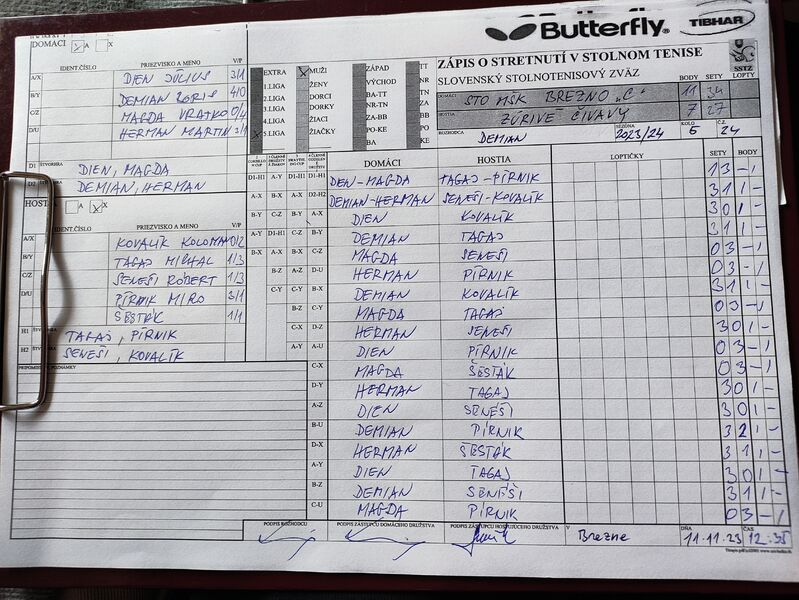 Butterfly
TIBHAR
ZÁPIS O STRETNUTÍ V STOLNOM TENISE
SLOVENSKÝ STOLNOTENISOVÝ ZVÄZ
SSTZ
BODY SETY LOPTY
DOMÁCI STO MŠK BREZNO „C" 11 34
HOSTIA ZÚRIVÉ ČIVAVY 7 27
ROZHODCA DEMIAN SEZÓNA 2023/24 KOLO 5 Č.Z. 24
DOMÁCI A X
IDENT.ČÍSLO PRIEZVISKO A MENO V/P
A/X DIEN JÚLIUS 3/1
B/Y DEMIAN BORIS 4/0
C/Z MAGDA VRATKO 0/4
D/U HERMAN MARTIN 3/1
D1 ŠTVORHRA DIEN, MAGDA
D2 DEMIAN, HERMAN
EXTRA
1.LIGA
2.LIGA
3.LIGA
4.LIGA
5.LIGA
MUŽI
ŽENY
DORCI
DORKY
ŽIACI
ŽIAČKY
ZÁPAD
VÝCHOD
BA-TT
NR-TN
ZA-BB
PO-KE
BA
TT
NR
TN
ZA
BB
PO
KE
HOSTIA A X
IDENT.ČÍSLO PRIEZVISKO A MENO V/P
A/X KOVALÍK KOLOMAN 0/2
B/Y TAGAJ MICHAL 1/3
C/Z SENEŠI RÓBERT 1/3
D/U PÍRNIK MIRO 3/1
ŠESTÁK 1/1
H1 TAGAJ, PÍRNIK
H2 SENEŠI, KOVALÍK
PRIPOMIENKY, POZNÁMKY
DOMÁCI HOSTIA LOPTIČKY SETY BODY
D1-H1 DIEN-MAGDA TAGAJ-PÍRNIK 1 3 - 1
D2-H2 DEMIAN-HERMAN SENEŠI-KOVALÍK 3 1 1 -
A-X DIEN KOVALÍK 3 0 1 -
B-Y DEMIAN TAGAJ 3 1 1 -
C-Z MAGDA SENEŠI 0 3 - 1
D-U HERMAN PÍRNIK 0 3 - 1
B-X DEMIAN KOVALÍK 3 1 1 -
C-Y MAGDA TAGAJ 0 3 - 1
D-Z HERMAN SENEŠI 3 0 1 -
A-U DIEN PÍRNIK 0 3 - 1
C-X MAGDA ŠESTÁK 0 3 - 1
D-Y HERMAN TAGAJ 3 0 1 -
A-Z DIEN SENEŠI 3 0 1 -
B-U DEMIAN PÍRNIK 3 2 1 -
D-X HERMAN ŠESTÁK 3 1 1 -
A-Y DIEN TAGAJ 3 0 1 -
B-Z DEMIAN SENEŠI 3 1 1 -
C-U MAGDA PÍRNIK 0 3 - 1
PODPIS ROZHODCU PODPIS ZÁSTUPCU DOMÁCEHO DRUŽSTVA PODPIS ZÁSTUPCU HOSŤUJÚCEHO DRUŽSTVA V Brezne DŇA 11.11.23 ČAS 12:35